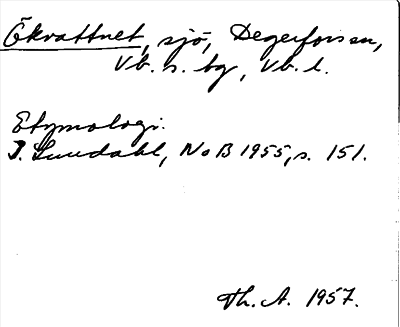 Ökvattnet, sjö, Degerfors sn,
Vb. s. bg, Vb. l.
Etymologi.
I. Lundahl, NoB 1955, s. 151.
Th. A. 1957.